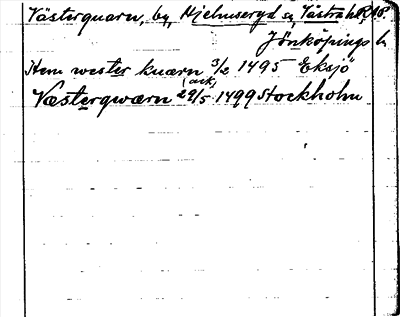 Västerquarn, by, Hjelmseryd sn, Västra hd
Jönköpings l.
Hem wester kuarn 3/2 1495 Eksjö
(ack)
Væsterqwærn 29/5 1499 Stockholm